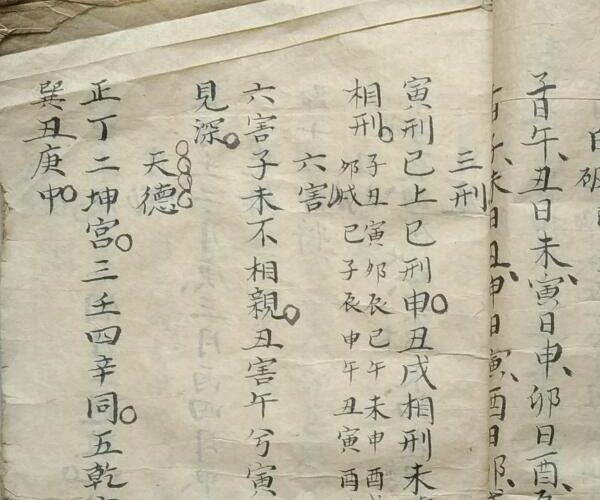 子日午、丑日未、寅日申、卯日酉、
三刑
寅刑巳上巳刑申○丑戌相刑未
相刑○子丑寅卯辰巳午未申酉
卯戌巳子辰申午丑寅酉
六害
六害子未不相親○丑害午兮寅
見深○
天德
正丁二坤宫○三壬四辛同○五乾
巽丑庚中○